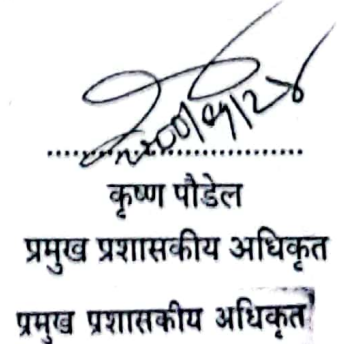 कृष्ण पौडेल
प्रमुख प्रशासकीय अधिकृत
प्रमुख प्रशासकीय अधिकृत